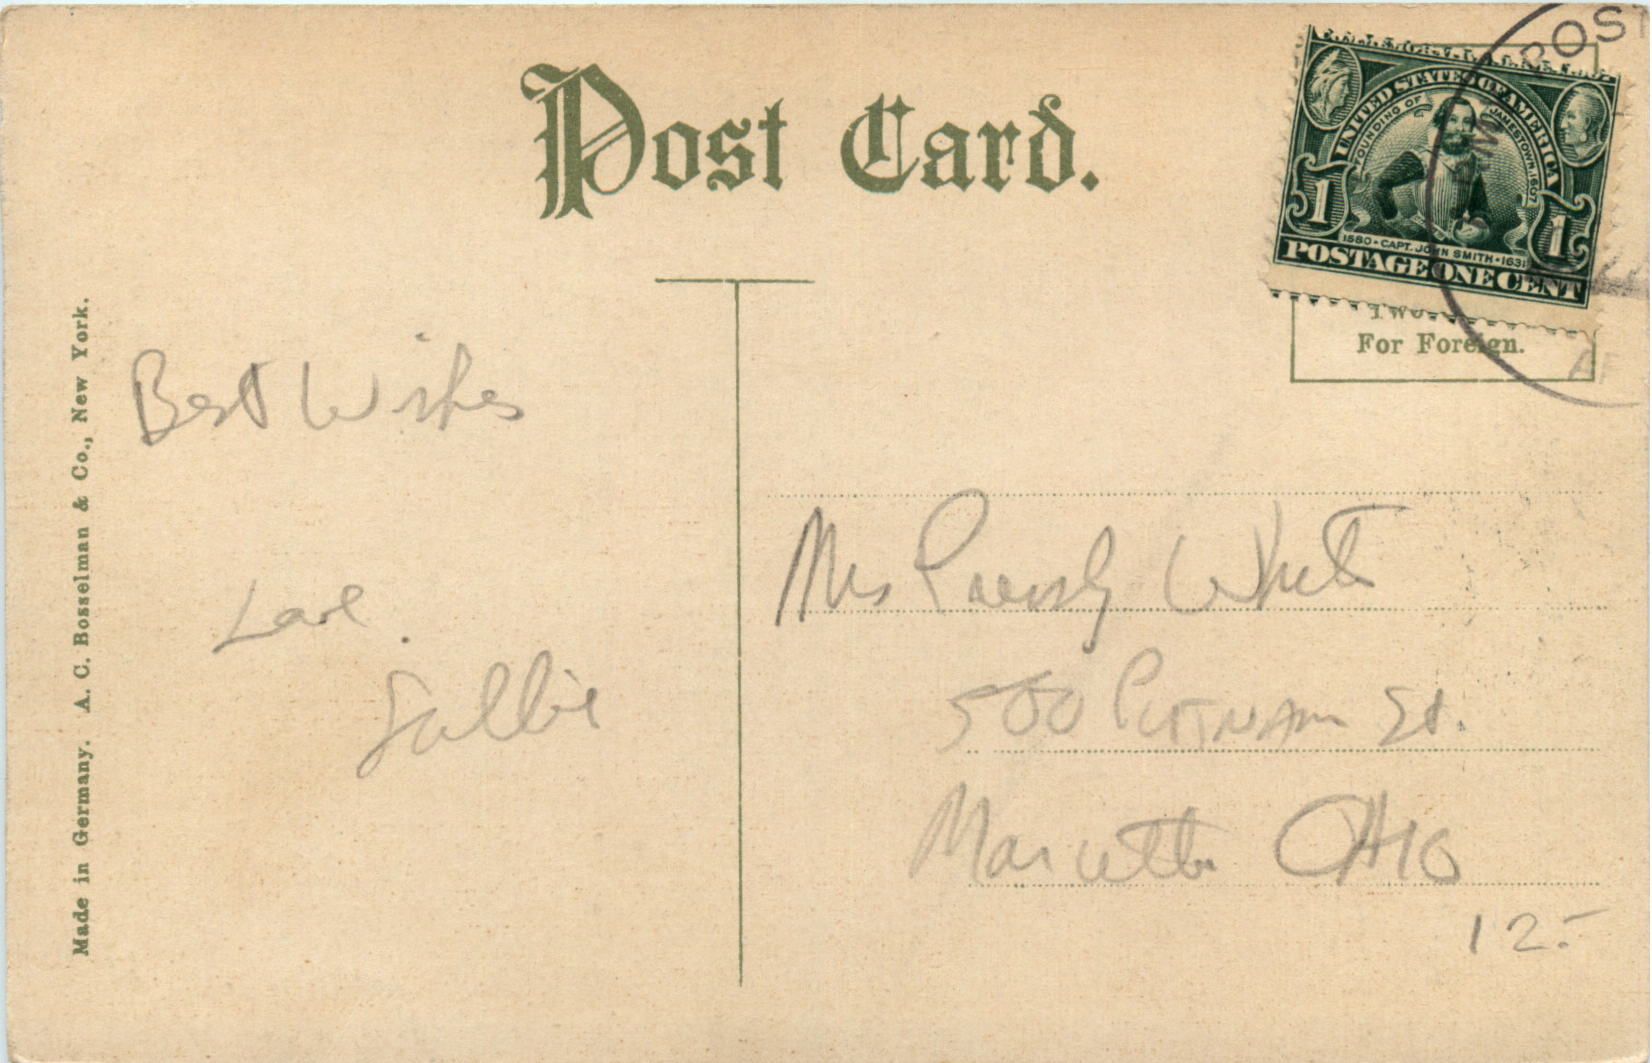 Post Card.
POST
UNITED STATES OF AMERICA
FOUNDING OF JAMESTOWN 1607
1 1
1580 • CAPT. JOHN SMITH • 1631
POSTAGE ONE CENT
For Foreign.
Made in Germany. A. C. Bosselman & Co., New York.
Best Wishes
Love
Sallie
Mrs White
500 PUTNAM St.
Marietta OHIO
12.-